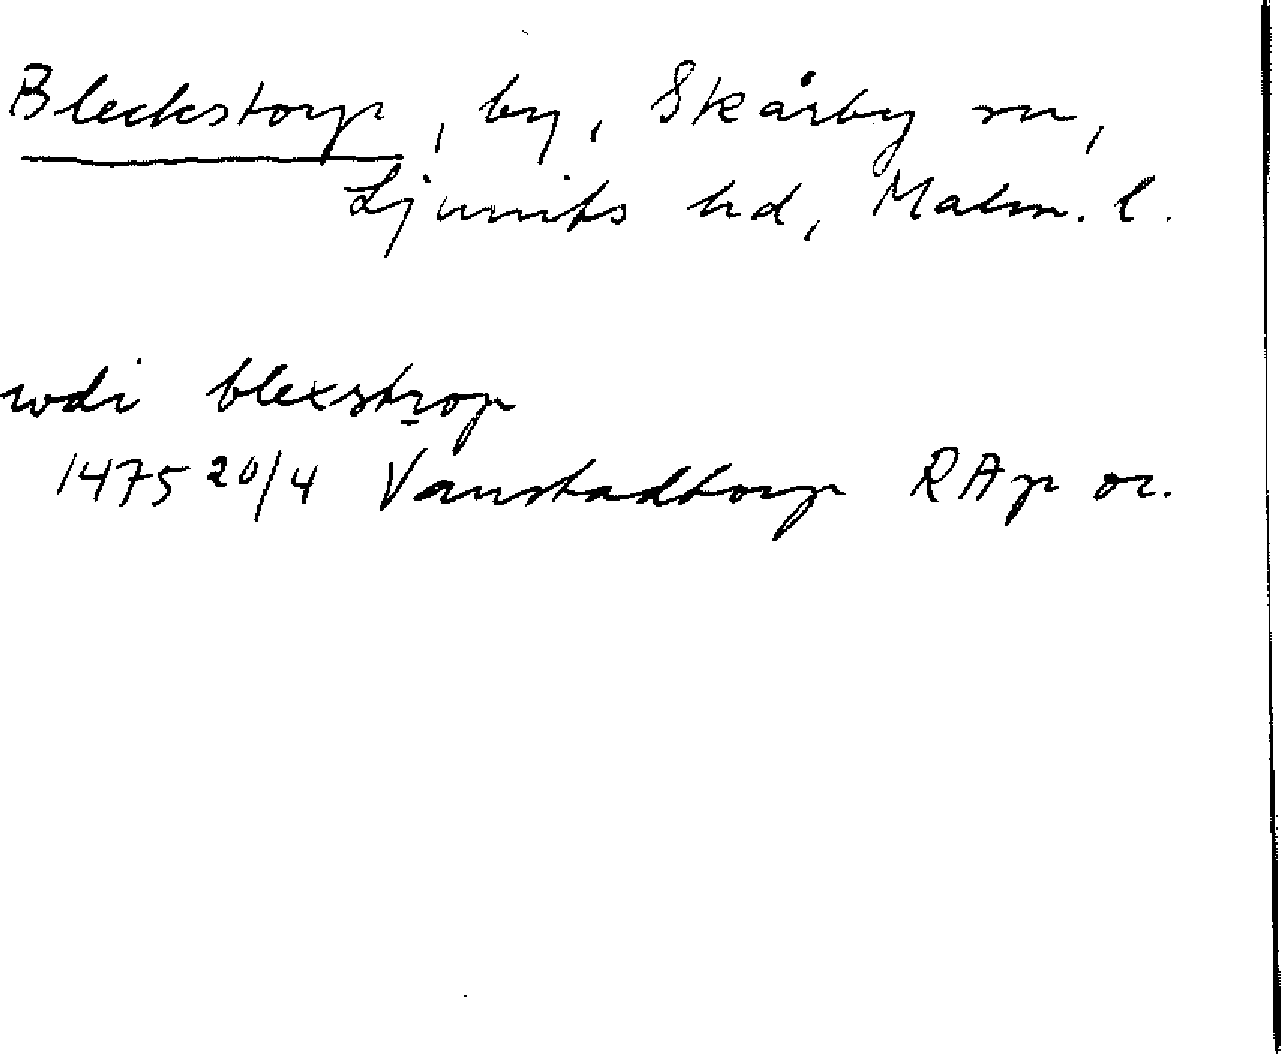 Bleckstorp, by, Skårby sn,
Ljunits hd, Malm. l.
wdi blexstrop
1475 20/4 Vanstadtorp RAp or.